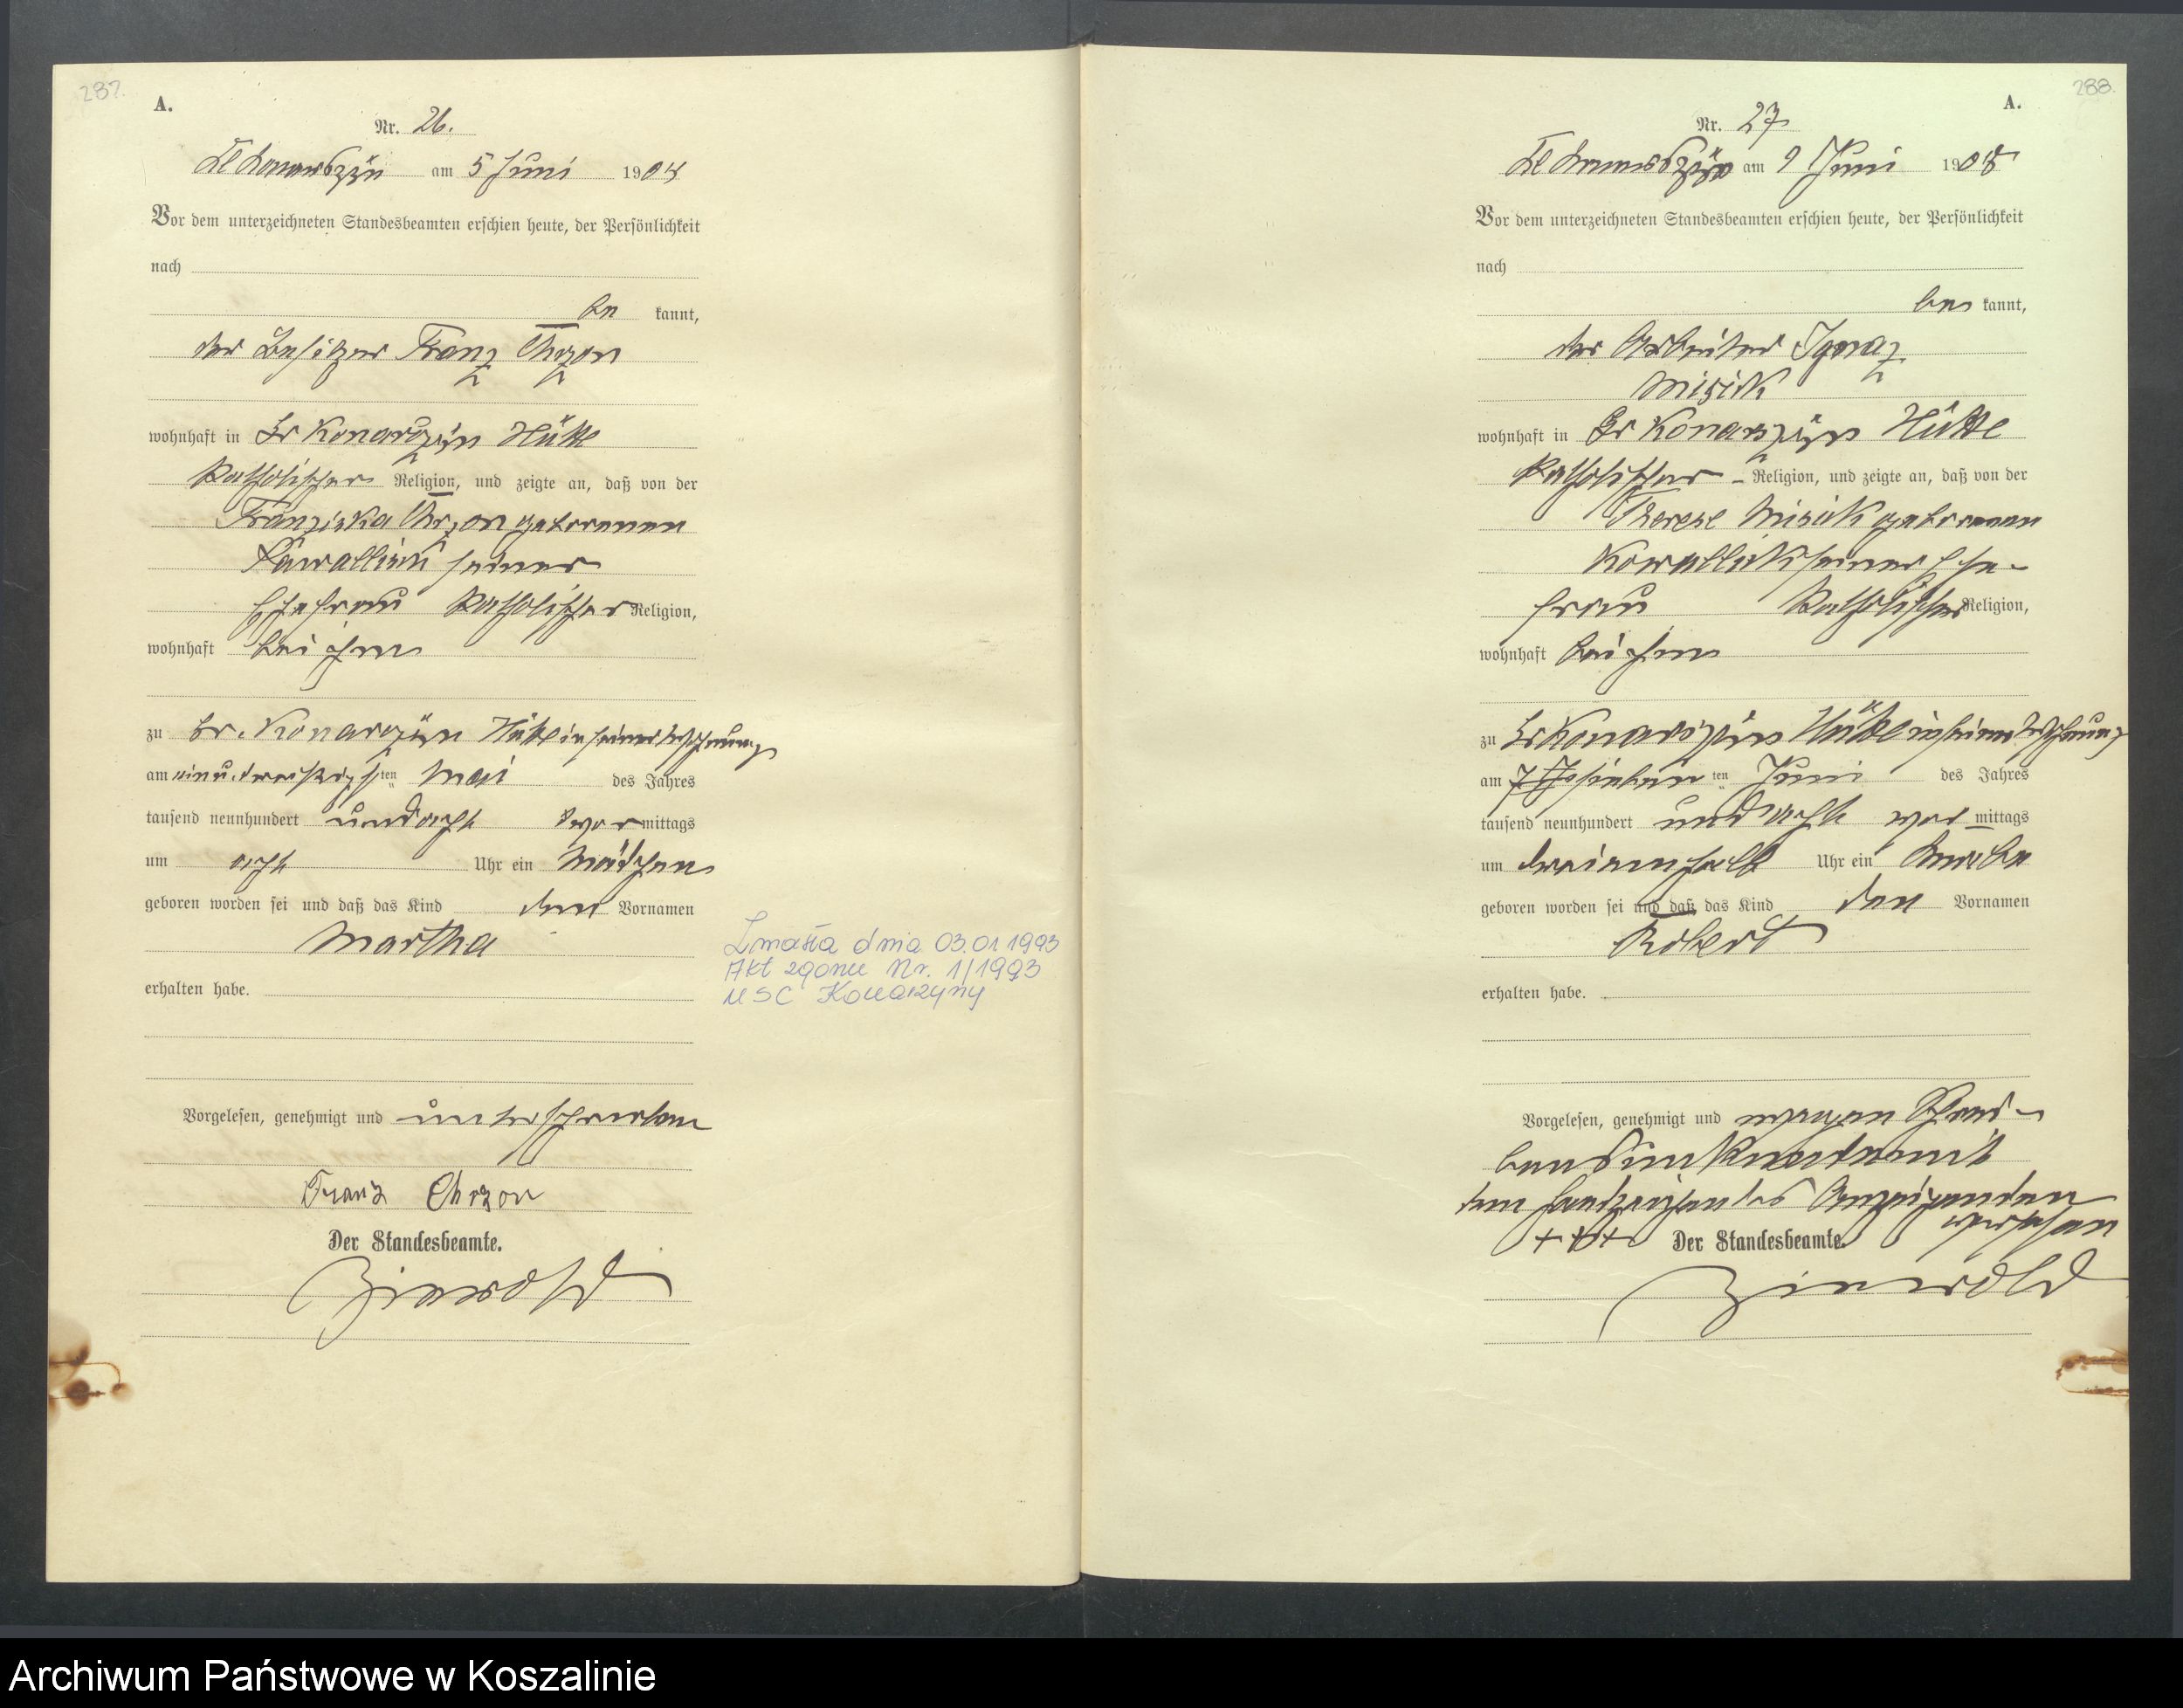 287.
A.
Nr. 26.
Kl Konarszyn am 5 Juni 1908
Vor dem unterzeichneten Standesbeamten erschien heute, der Persönlichkeit
nach
be kannt,
der Besitzer Franz Chrzon
wohnhaft in Gr Konarczyn Hütte
Katholischer Religion, und zeigte an, daß von der
Franziska Chrzon geborenen
seiner
Ehefrau Katholischer Religion,
wohnhaft bei ihm
zu Gr. Konarczyn Hütte in seiner Wohnung
am einu.dreißigsten Mai des Jahres
tausend neunhundert und acht vormittags
um acht Uhr ein Mädchen
geboren worden sei und daß das Kind den Vornamen
Martha
erhalten habe.
Zmarła dnia 03.01 1993
Akt zgonu Nr. 1/1993
USC Konarzyny
Vorgelesen, genehmigt und unterschrieben
Franz Chrzon
Der Standesbeamte.
288.
A.
Nr. 27
Kl Konarszyn am 9 Juni 1908
Vor dem unterzeichneten Standesbeamten erschien heute, der Persönlichkeit
nach
be kannt,
der Arbeiter Ignaz
Misick
wohnhaft in Gr Konarszyn Hütte
Katholischer Religion, und zeigte an, daß von der
Therese Misick geborenen
Kowallick seiner Ehe-
frau Katholischer Religion,
wohnhaft bei ihm
zu Gr Konarszyn Hütte in seiner Wohnung
am sieben ten Juni des Jahres
tausend neunhundert und acht vor mittags
um dreieinhalb Uhr ein Knabe
geboren worden sei und daß das Kind den Vornamen
Robert
erhalten habe.
Vorgelesen, genehmigt und wegen Schrei-
bensunkunde mit
dem Handzeichen des Anzeigenden
versehen
+++ Der Standesbeamte.
Archiwum Państwowe w Koszalinie